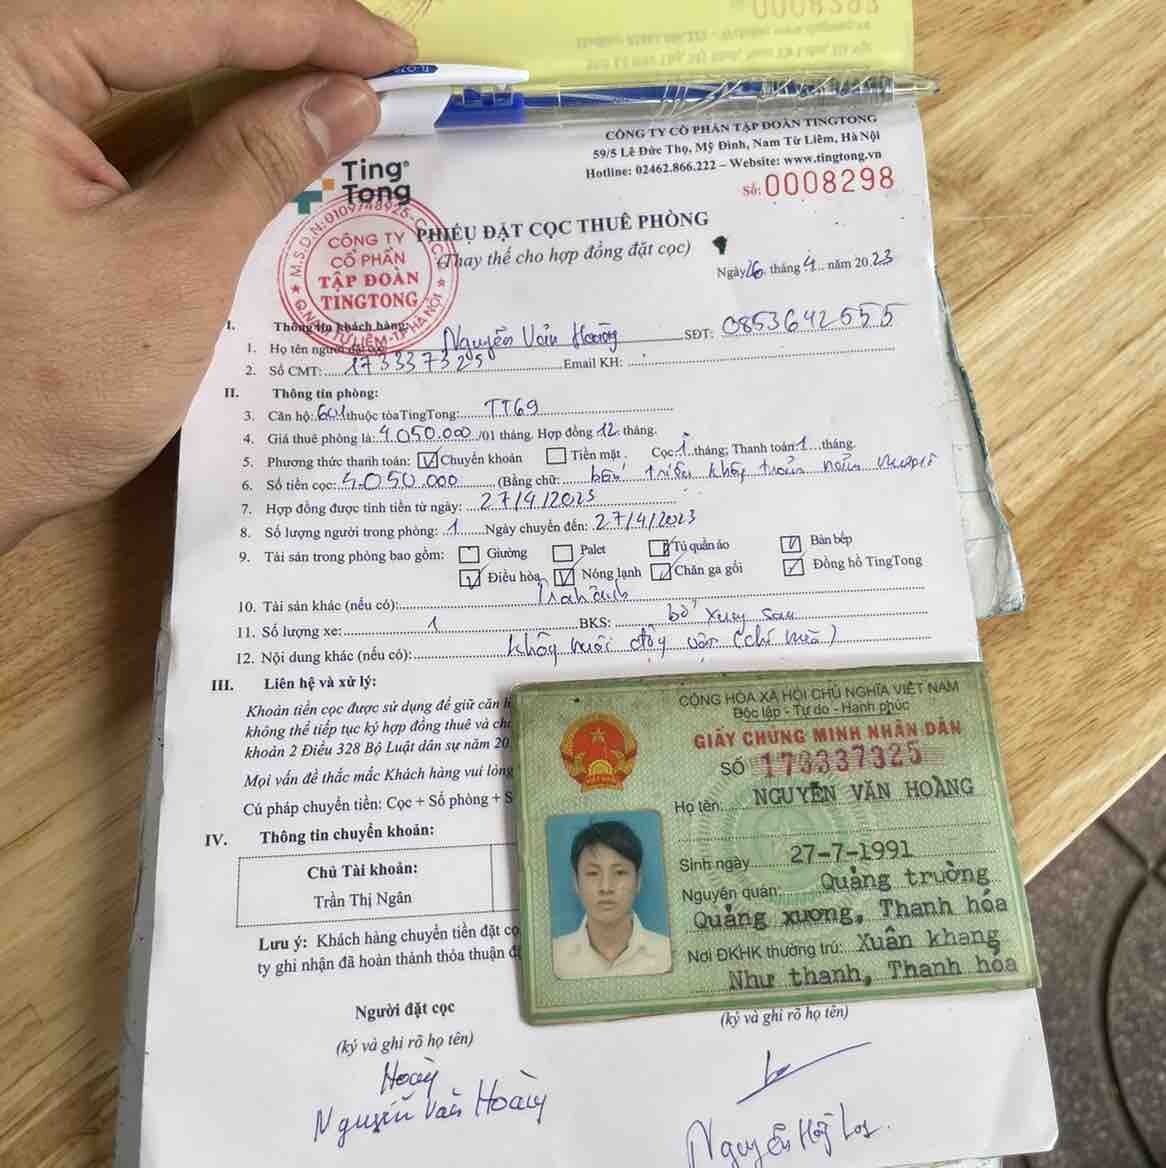 CÔNG TY CỔ PHẦN TẬP ĐOÀN TINGTONG
59/5 Lê Đức Thọ, Mỹ Đình, Nam Từ Liêm, Hà Nội
Hotline: 02462.866.222 – Website: www.tingtong.vn
Số: 0008298
Ting
Tong
M.S.D.N:0109748926-C.T.C.P
CÔNG TY
CỔ PHẦN
TẬP ĐOÀN
TINGTONG
Q.NAM TỪ LIÊM-TP HÀ NỘI
PHIẾU ĐẶT CỌC THUÊ PHÒNG
(Thay thế cho hợp đồng đặt cọc)
Ngày 26 tháng 4 năm 2023
I. Thông tin khách hàng:
1. Họ tên người đặt cọc: Nguyễn Văn Hoàng SĐT: 0853642555
2. Số CMT: 173337325 Email KH:
II. Thông tin phòng:
3. Căn hộ: 601 thuộc tòa TingTong: TT69
4. Giá thuê phòng là: 4.050.000 /01 tháng. Hợp đồng 12 tháng.
5. Phương thức thanh toán: Chuyển khoản Tiền mặt. Cọc: 1 tháng; Thanh toán: 1 tháng.
6. Số tiền cọc: 4.050.000 (Bằng chữ: bốn triệu không trăm năm mươi
7. Hợp đồng được tính tiền từ ngày: 27/4/2023
8. Số lượng người trong phòng: 1 Ngày chuyển đến: 27/4/2023
9. Tài sản trong phòng bao gồm: Giường Palet Tủ quần áo Bàn bếp
Điều hòa Nóng lạnh Chăn ga gối Đồng hồ TingTong
10. Tài sản khác (nếu có):
11. Số lượng xe: 1 BKS: bổ xung sau
12. Nội dung khác (nếu có): không nuôi động vật (chó mèo)
III. Liên hệ và xử lý:
Khoản tiền cọc được sử dụng để giữ căn
không thể tiếp tục ký hợp đồng thuê và
khoản 2 Điều 328 Bộ Luật dân sự năm 20
Mọi vấn đề thắc mắc Khách hàng vui lòng
Cú pháp chuyển tiền: Cọc + Số phòng + S
IV. Thông tin chuyển khoản:
Chủ Tài khoản:
Trần Thị Ngân
Lưu ý: Khách hàng chuyển tiền đặt cọ
ty ghi nhận đã hoàn thành thỏa thuận đ
CỘNG HÒA XÃ HỘI CHỦ NGHĨA VIỆT NAM
Độc lập - Tự do - Hạnh phúc
GIẤY CHỨNG MINH NHÂN DÂN
SỐ 173337325
Họ tên: NGUYỄN VĂN HOÀNG
Sinh ngày 27-7-1991
Nguyên quán: Quảng trường
Quảng xương, Thanh hóa
Nơi ĐKHK thường trú: Xuân khang
Như thanh, Thanh hóa
Người đặt cọc
(ký và ghi rõ họ tên)
(ký và ghi rõ họ tên)
Hoàng
Nguyễn Văn Hoàng
Nguyễn